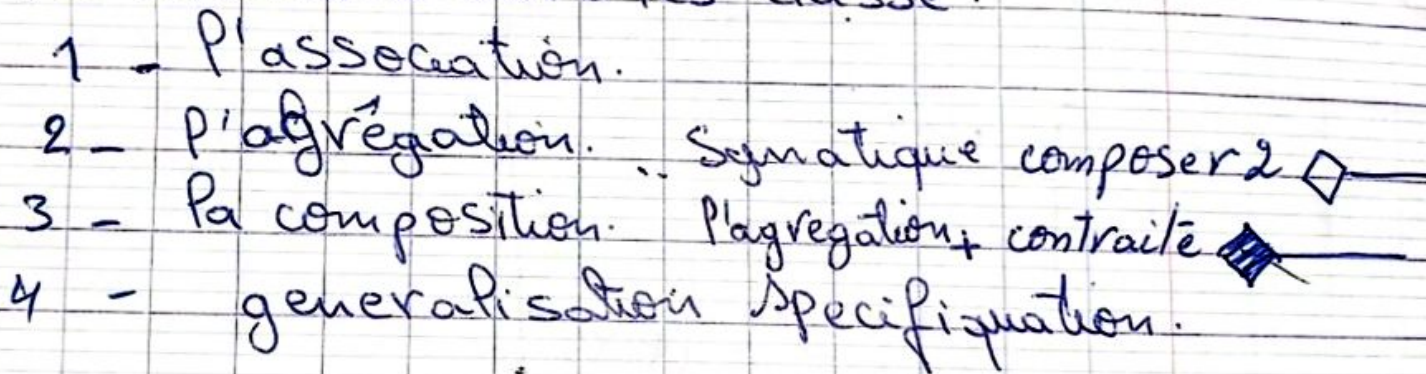 classe.
1 - l'association.
2 - l'agrégation. .. Symatique composer 2
3 - la composition. l'agregation + contraité
4 - generalisation specifiquation.